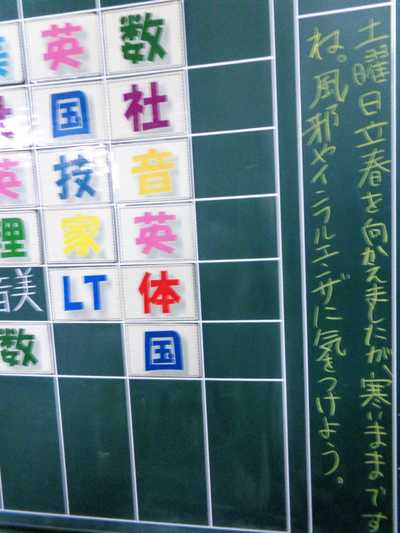 土曜日立春を向かえましたが、寒いままです
ね。風邪やインフルエンザに気をつけよう。
英 数
国 社
英 技 音
理 家 英
音美 LT 体
数 国